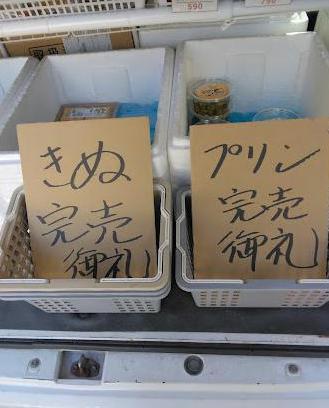 590
790
きぬ
完売
御礼
プリン
完売
御礼